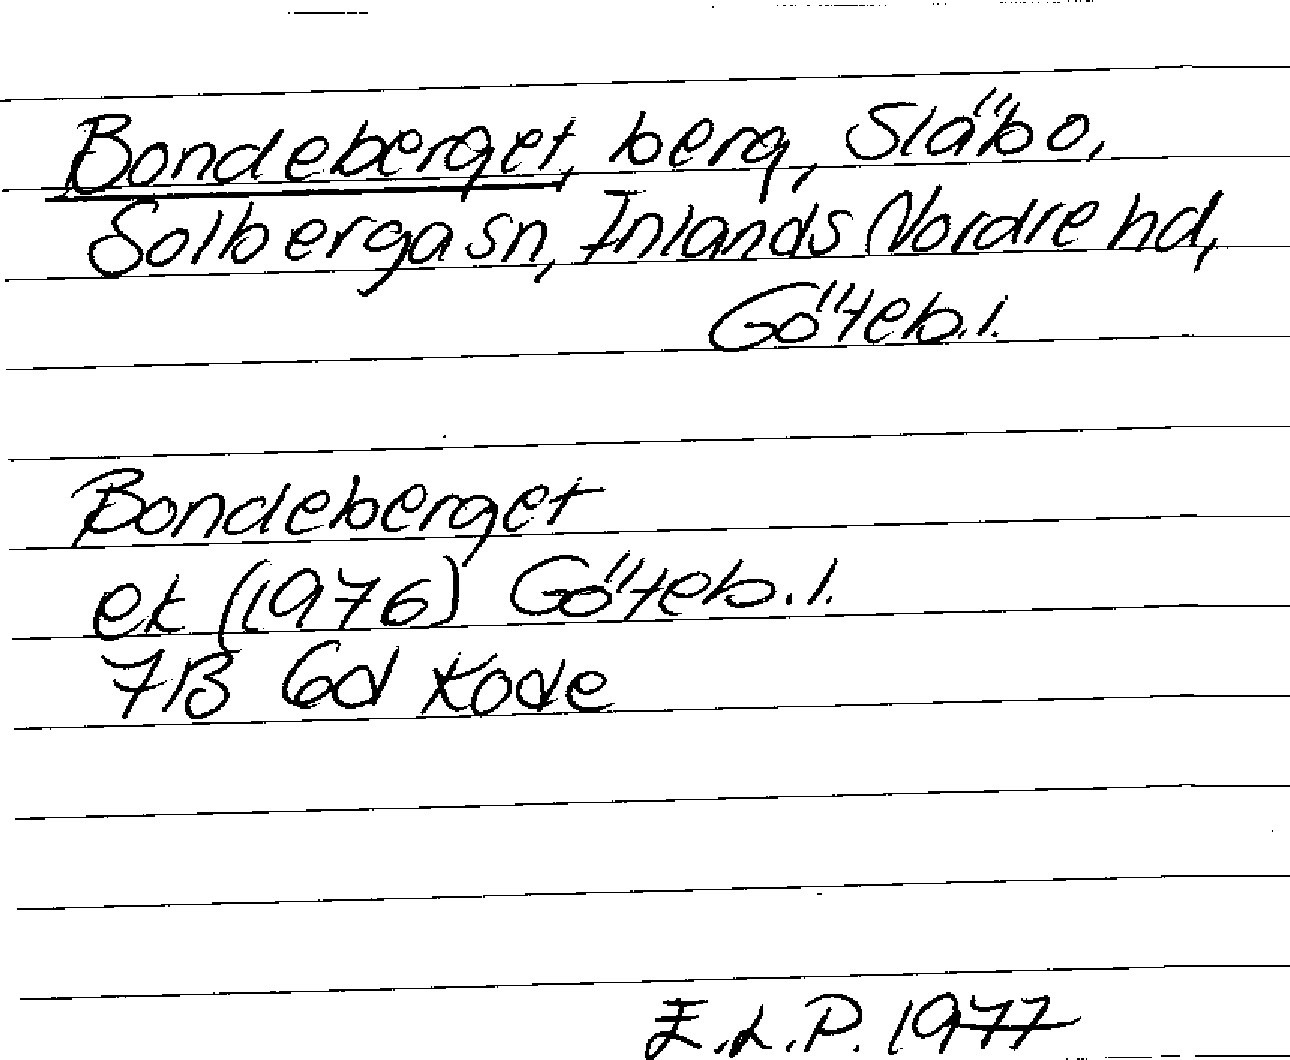 Bondeberget, berg, Släbo,
Solberga sn, Inlands Nordre hd,
Göteb. l.
Bondeberget
ek (1976) Göteb. l.
7B 6d Kode
E.L.P. 1977